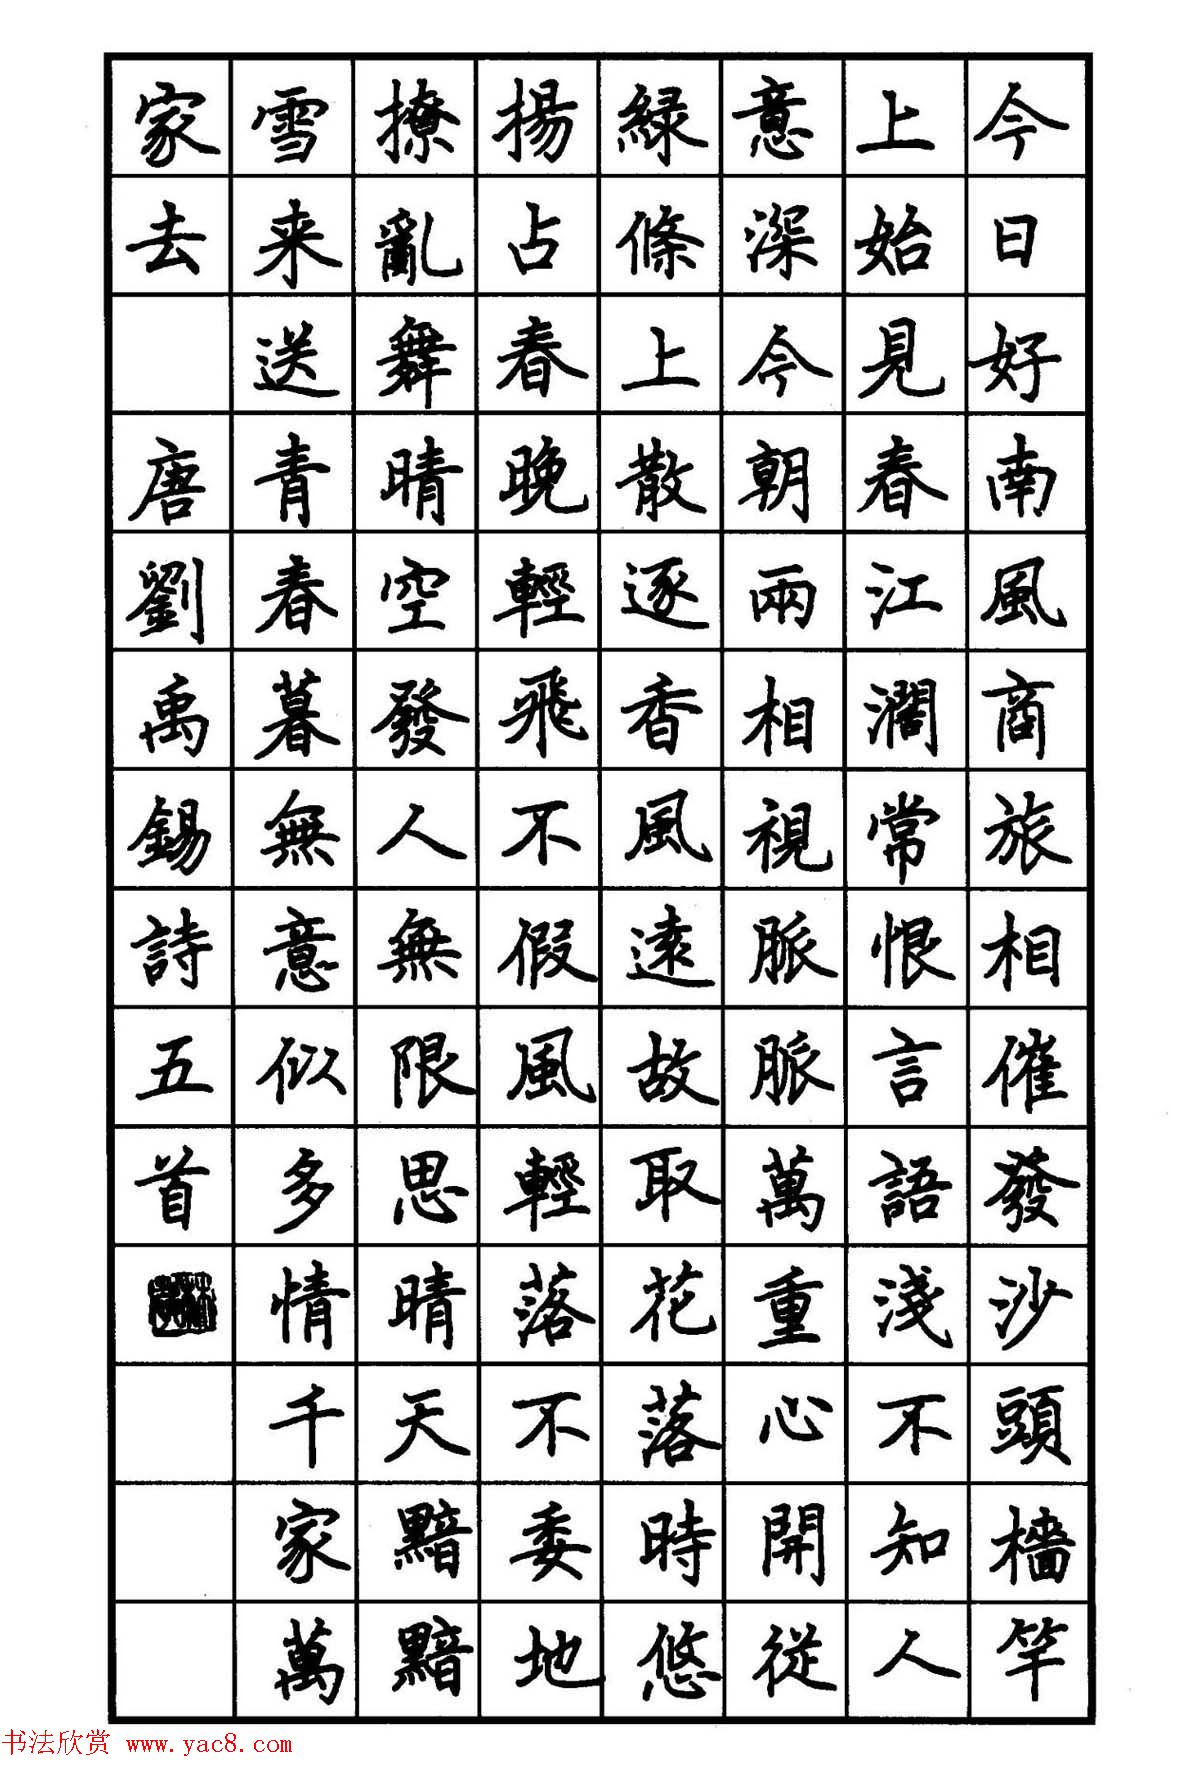 今日好南風商旅相催發沙頭檣竿
上始見春江濶常恨言語淺不知人
意深今朝兩相視脈脈萬重心開從
緑條上散逐香風遠故取花落時悠
揚占春晚輕飛不假風輕落不委地
撩亂舞晴空發人無限思晴天黯黯
雪来送青春暮無意似多情千家萬
家去 唐劉禹錫詩五首
书法欣赏 www.yac8.com